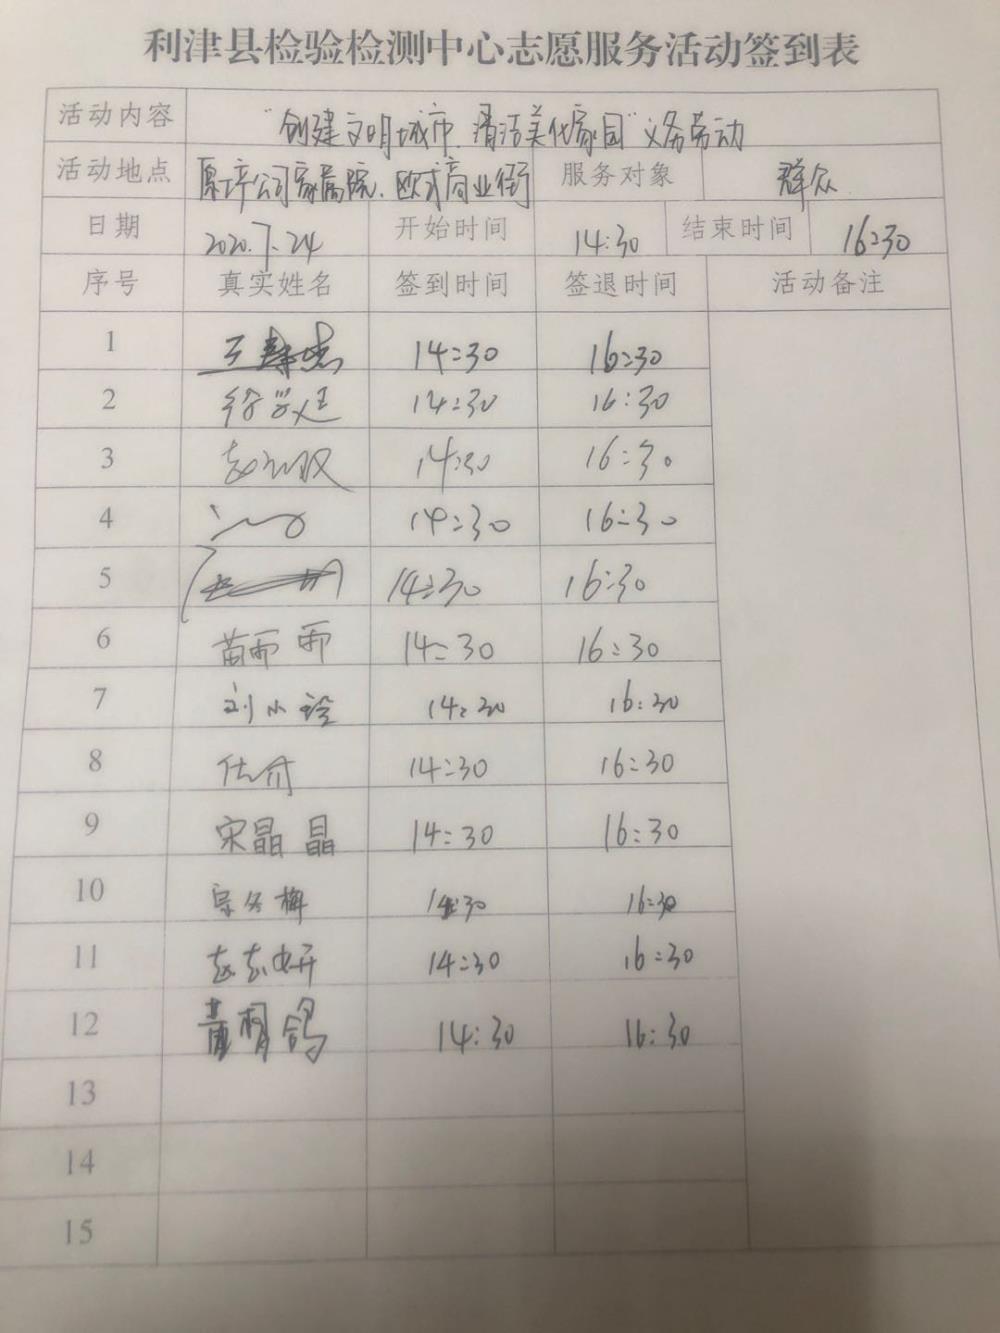 利津县检验检测中心志愿服务活动签到表
活动内容 "创建文明城市、清洁美化家园"义务劳动
活动地点 公司家属院、欧式商业街 服务对象 群众
日期 2020.7.24 开始时间 14:30 结束时间 16:30
序号 真实姓名 签到时间 签退时间 活动备注
1 14:30 16:30
2 14:30 16:30
3 14:30 16:30
4 14:30 16:30
5 14:30 16:30
6 苗雨雨 14:30 16:30
7 刘小玲 14:30 16:30
8 14:30 16:30
9 宋晶晶 14:30 16:30
10 14:30 16:30
11 14:30 16:30
12 14:30 16:30
13
14
15